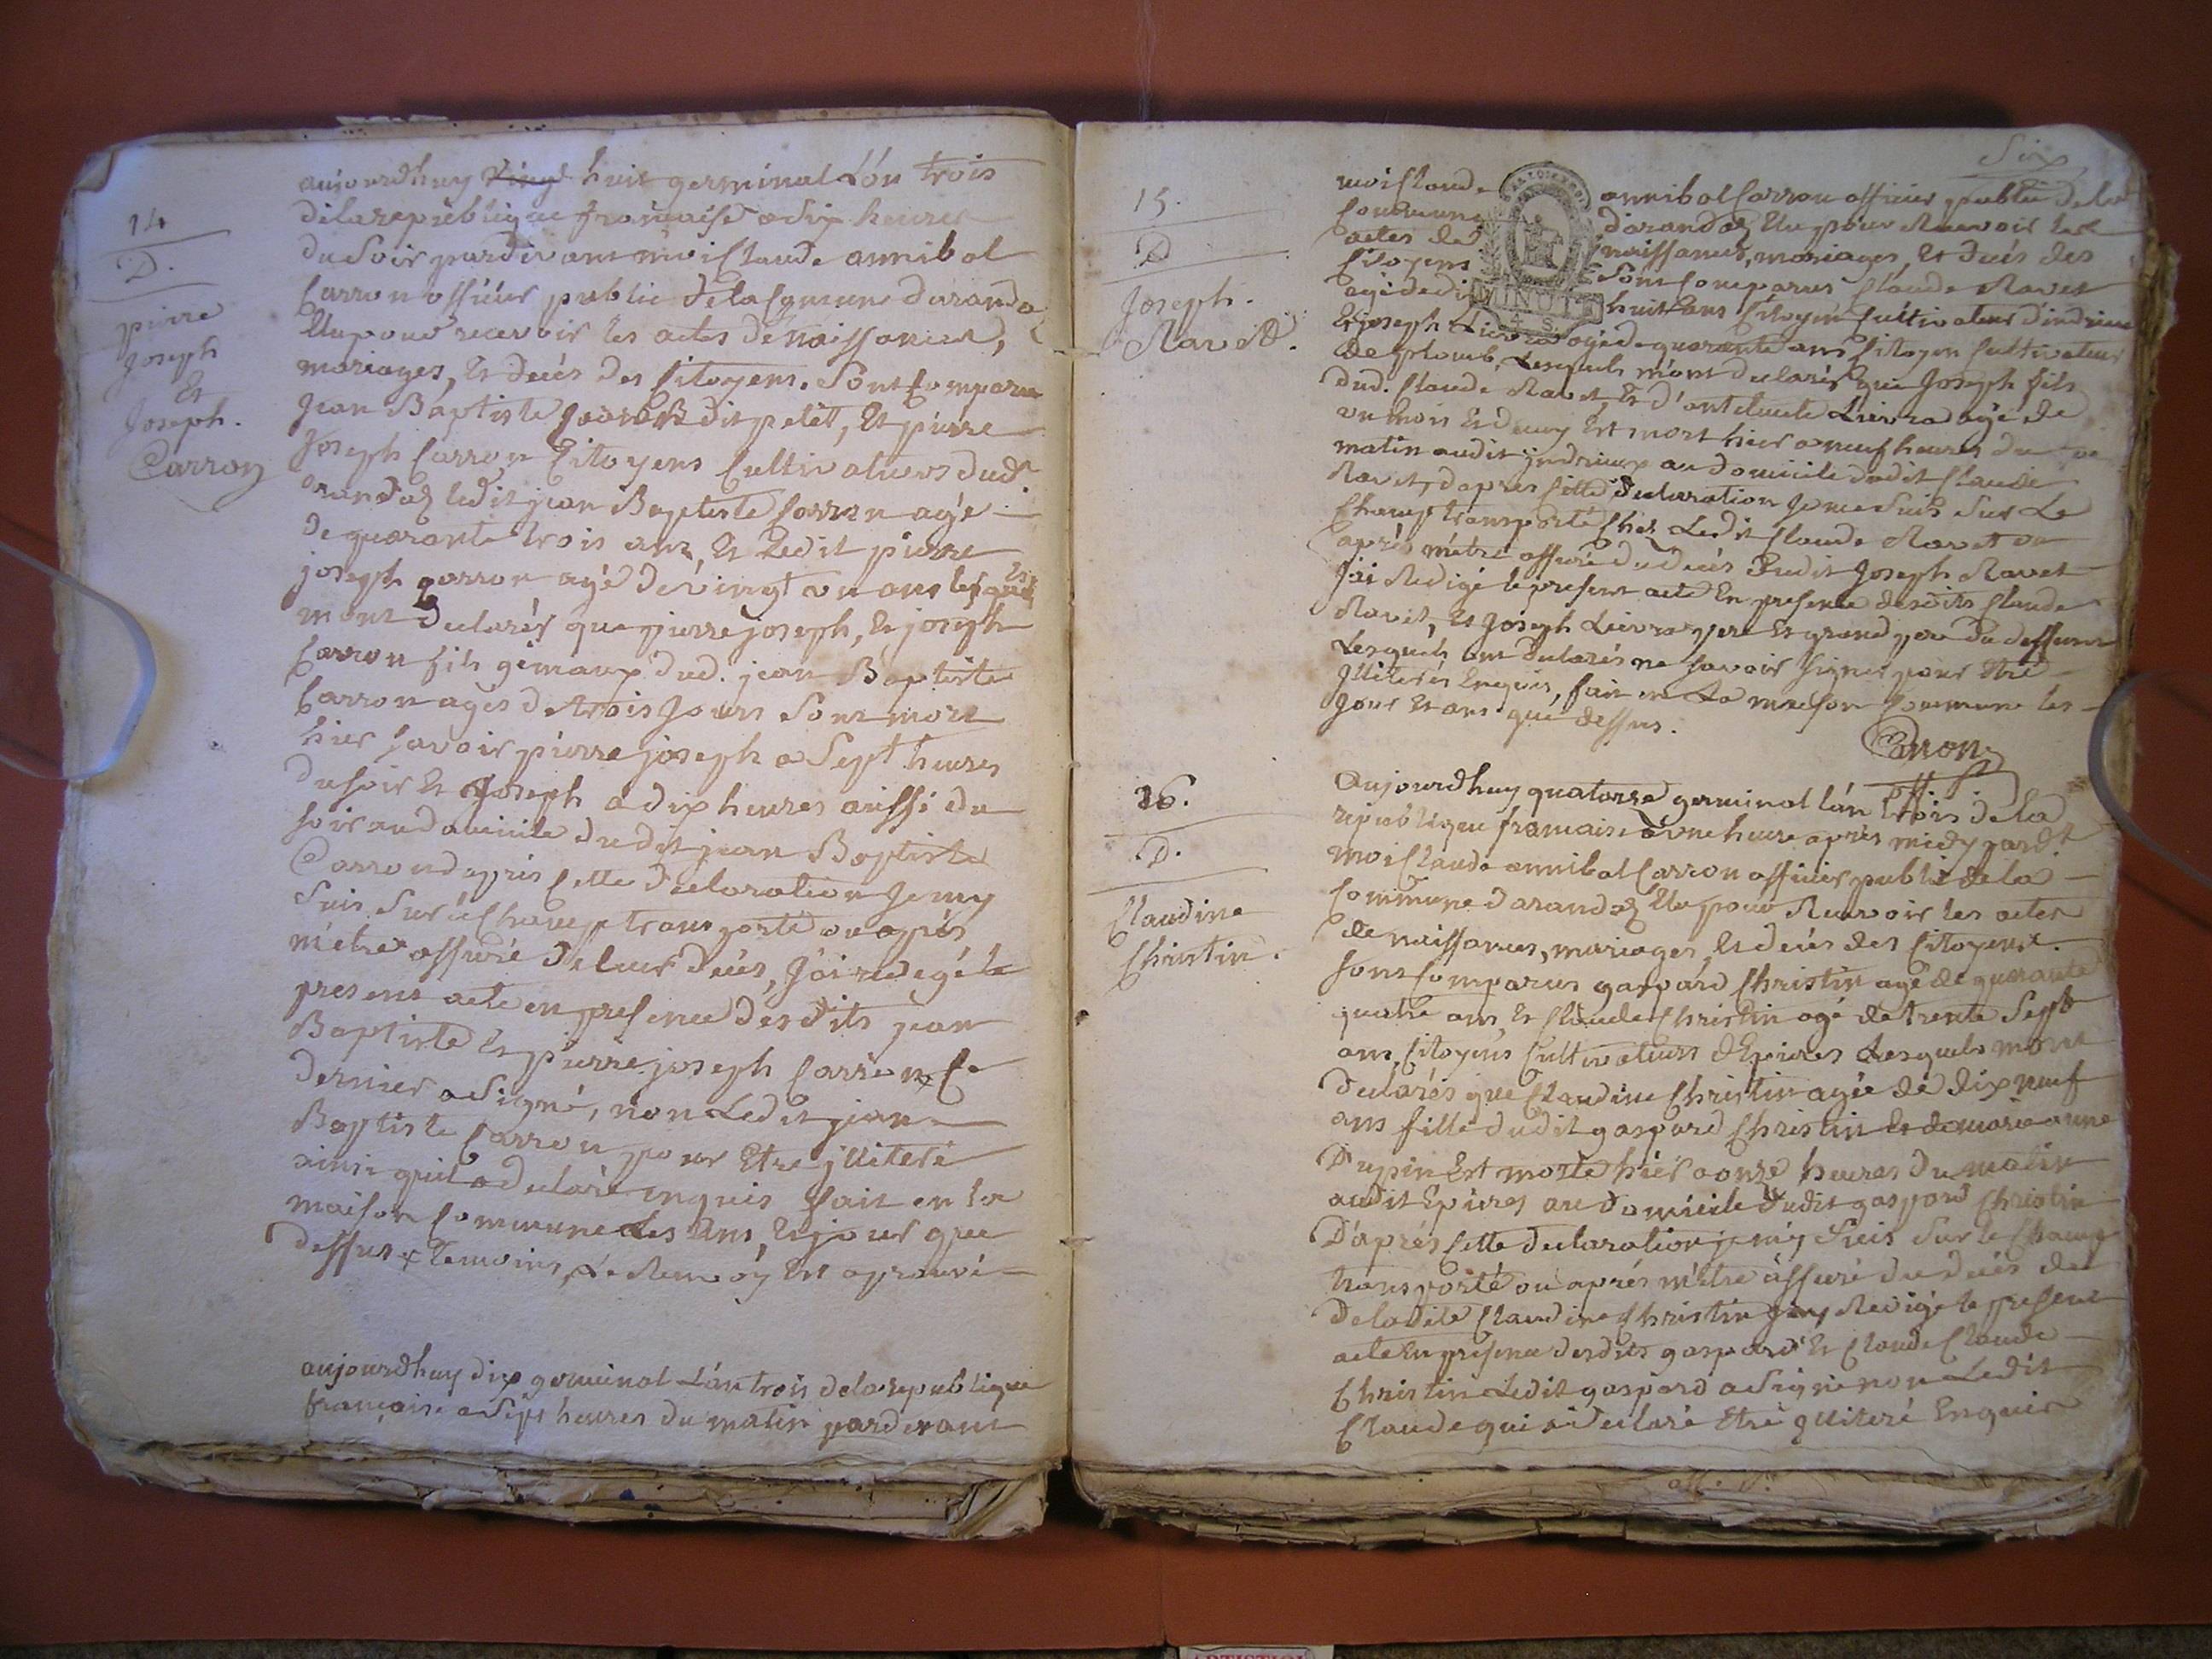 14
D.
pierre
joseph
Et
Joseph.
Carron
aujourdhuy vingt huit germinal L'ón trois
dela republique francaise a Six heures
du Soir pardevant moi Claude annibal
Carron officier public dela Comune darandas
Elu pour recevoir les actes de naissances,
mariages, Et decés des Citoyens. Sont Comparu
Jean Baptiste Carron dit petit, Et pierre
Joseph Carron Citoyens Cultivateurs dud.
arandas ledit jean Baptiste Carron agé
de quarante trois ans, Et Ledit pierre
joseph Carron agé de vingt un ans lesquels
mont declarés que pierre joseph, Et joseph
Carron fils gémaux dud. jean Baptiste
Carron agés de trois Jours Sont mort
hier savoir pierre joseph a Sept heures
du soir Et Joseph a dix heures aussi du
soir au domicile dudit jean Baptiste
Carron daprés Cette declaration Je my
Suis Sur le Champ transporté ou aprés
m'etre assuré de leur decés, J'ai redegé le
present acte en presence desdits jean
Baptiste Et pierre joseph Carron Ce
dernier a Signé, non Ledit jean
Baptiste Carron pour Etre jlliteré
ainsi quil a declaré enquis fait en la
maison Commune Les ans, Et jour que
dessus x temoins, Le Renvoy Est aprouvé
aujourdhuy dix germinal L'án trois dela republique
francaise a Sept heures du matin pardevant
Six
15.
D
Joseph.
Ravet.
moi Claude annibal Carron officier public dela
Commune darandas Elu pour Recevoir les
actes de naissances, mariages, Et decés des
Citoyens Sont Comparus Claude Ravet
agé de dix huit ans Citoyen Cultivateur d'indrieux
MINUTE
4 S.
Et joseph Lievra agé de quarante ans Citoyen Cultivateur
de plomb, Lesquels m'ont declarés que Joseph fils
dud. Claude Ravet, Et d' Lievra agé de
un mois Et demy Est mort hier a neuf heures du
matin audit jndrieux au domicile dudit Claude
Ravet, daprés Cette declaration Je me Suis Sur Le
Champ transporté Chez Ledit Claude Ravet ou
aprés m'etre assuré du decés dudit Joseph Ravet
J'ai Redigé le present acte En presence desdits Claude
Ravet, Et Joseph Lievra pere Et grand pere du deffunt
Lesquels ont declarés ne savoir signer pour Etre
Jlliterés Enquis, fait en La maison Commune les
Jour Et ans que dessus.
Carron
off. p.
16.
D.
Claudine
Christin.
Aujourdhuy quatorze germinal lán trois dela
republique francaise a une heure aprés midy pardt
moi Claude annibal Carron officier public dela
Commune darandas Elu pour Recevoir les actes
de naissances, mariages, Et decés des Citoyens.
Sont Comparus gaspard Christin agé de quarante
quatre ans, Et Claude Christin agé de trente Sept
ans, Citoyens Cultivateurs d'Epieres Lesquels mont
declarés que Claudine Christin agée de dix neuf
ans fille dudit gaspard Christin Et de marie anne
Dupin Est morte hier a onze heures du matin
audit Epieres au domicile dudit gaspard Christin
D'aprés Cette declaration je my Suis Sur le Champ
transporté ou aprés m'etre assuré du decés de
dela dite Claudine Christin jay Redigé le present
acte En presence desdits gaspard Et Claude Claude
Christin Ledit gaspard a Signé non Ledit
Claude qui a declaré Etre jlliteré Enquis
off. p.